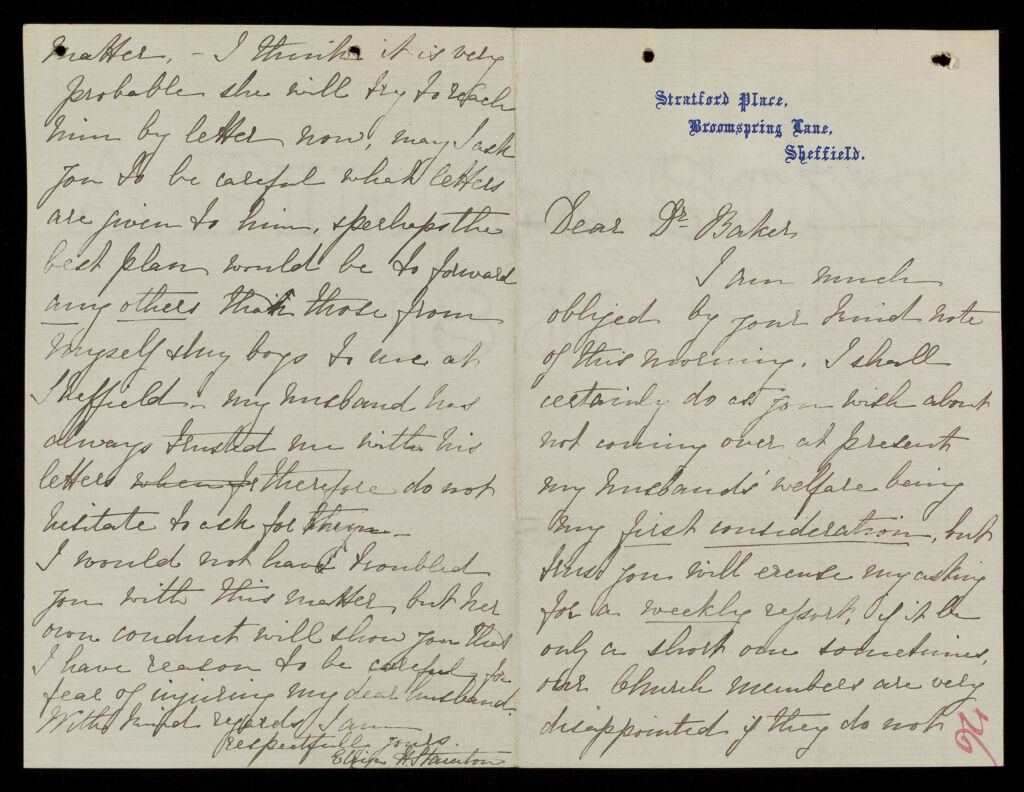 Stratford Place,
Broomspring Lane,
Sheffield.
Dear Dr Baker
I am much
obliged by your kind note
of this morning. I shall
certainly do as you wish about
not coming over at present
my husband's welfare being
my first consideration, but
trust you will excuse my asking
for a weekly report, if it be
only a short one sometimes,
our Church members are very
disappointed if they do not
96
matter. - I think it is very
probable she will try to reach
him by letter now, may I ask
you to be careful what letters
are given to him, & perhaps the
best plan would be to forward
any others than those from
myself & my boys to me at
Sheffield - my husband has
always trusted me with his
letters therefore do not
hesitate to ask for them -
I would not have troubled
you with this matter, but her
own conduct will show you that
I have reason to be careful, for
fear of injuring my dear husband.
With kind regards I am
respectfully yours
H. Stainton